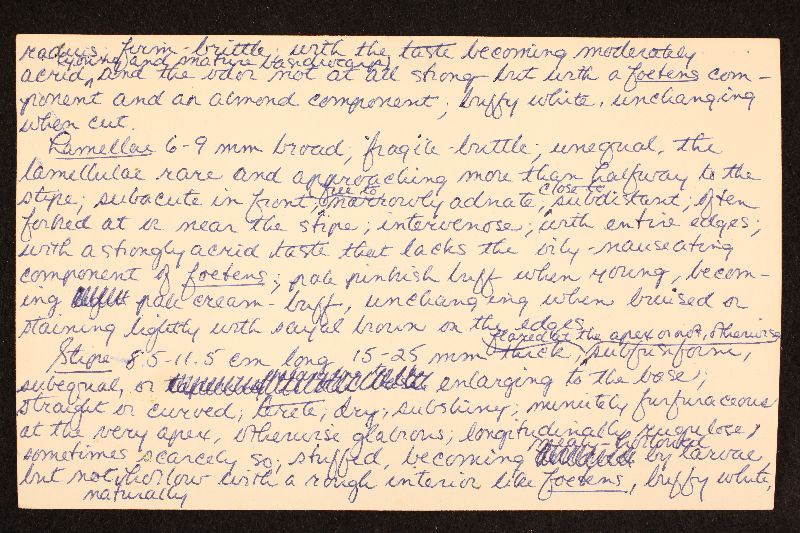 radius; firm-brittle; with the taste becoming moderately
(young and mature basidiocarps)
acrid, and the odor not at all strong but with a foetens com-
ponent and an almond component; buffy white, unchanging
when cut.
Lamellae 6-9 mm broad; fragile-brittle; unequal, the
lamellulae rare and approaching more than halfway to the
stipe; subacute in front; free to narrowly adnate; close to subdistant; often
forked at or near the stipe; intervenose; with entire edges;
with a strongly acrid taste that lacks the oily-nauseating
component of foetens; pale pinkish buff when young, becom-
ing pale cream-buff, unchanging when bruised or
staining lightly with sayal brown on the edges.
Stipe 8.5-11.5 cm long, 15-25 mm thick; flared at the apex or not, otherwise subfusiform,
subequal, or enlarging to the base;
straight or curved; terete; dry; subshiny; minutely furfuraceous
at the very apex, otherwise glabrous; longitudinally rugulose,
sometimes scarcely so; stuffed, becoming hollowed by larvae
but not naturally hollow with a rough interior like foetens, buffy white,